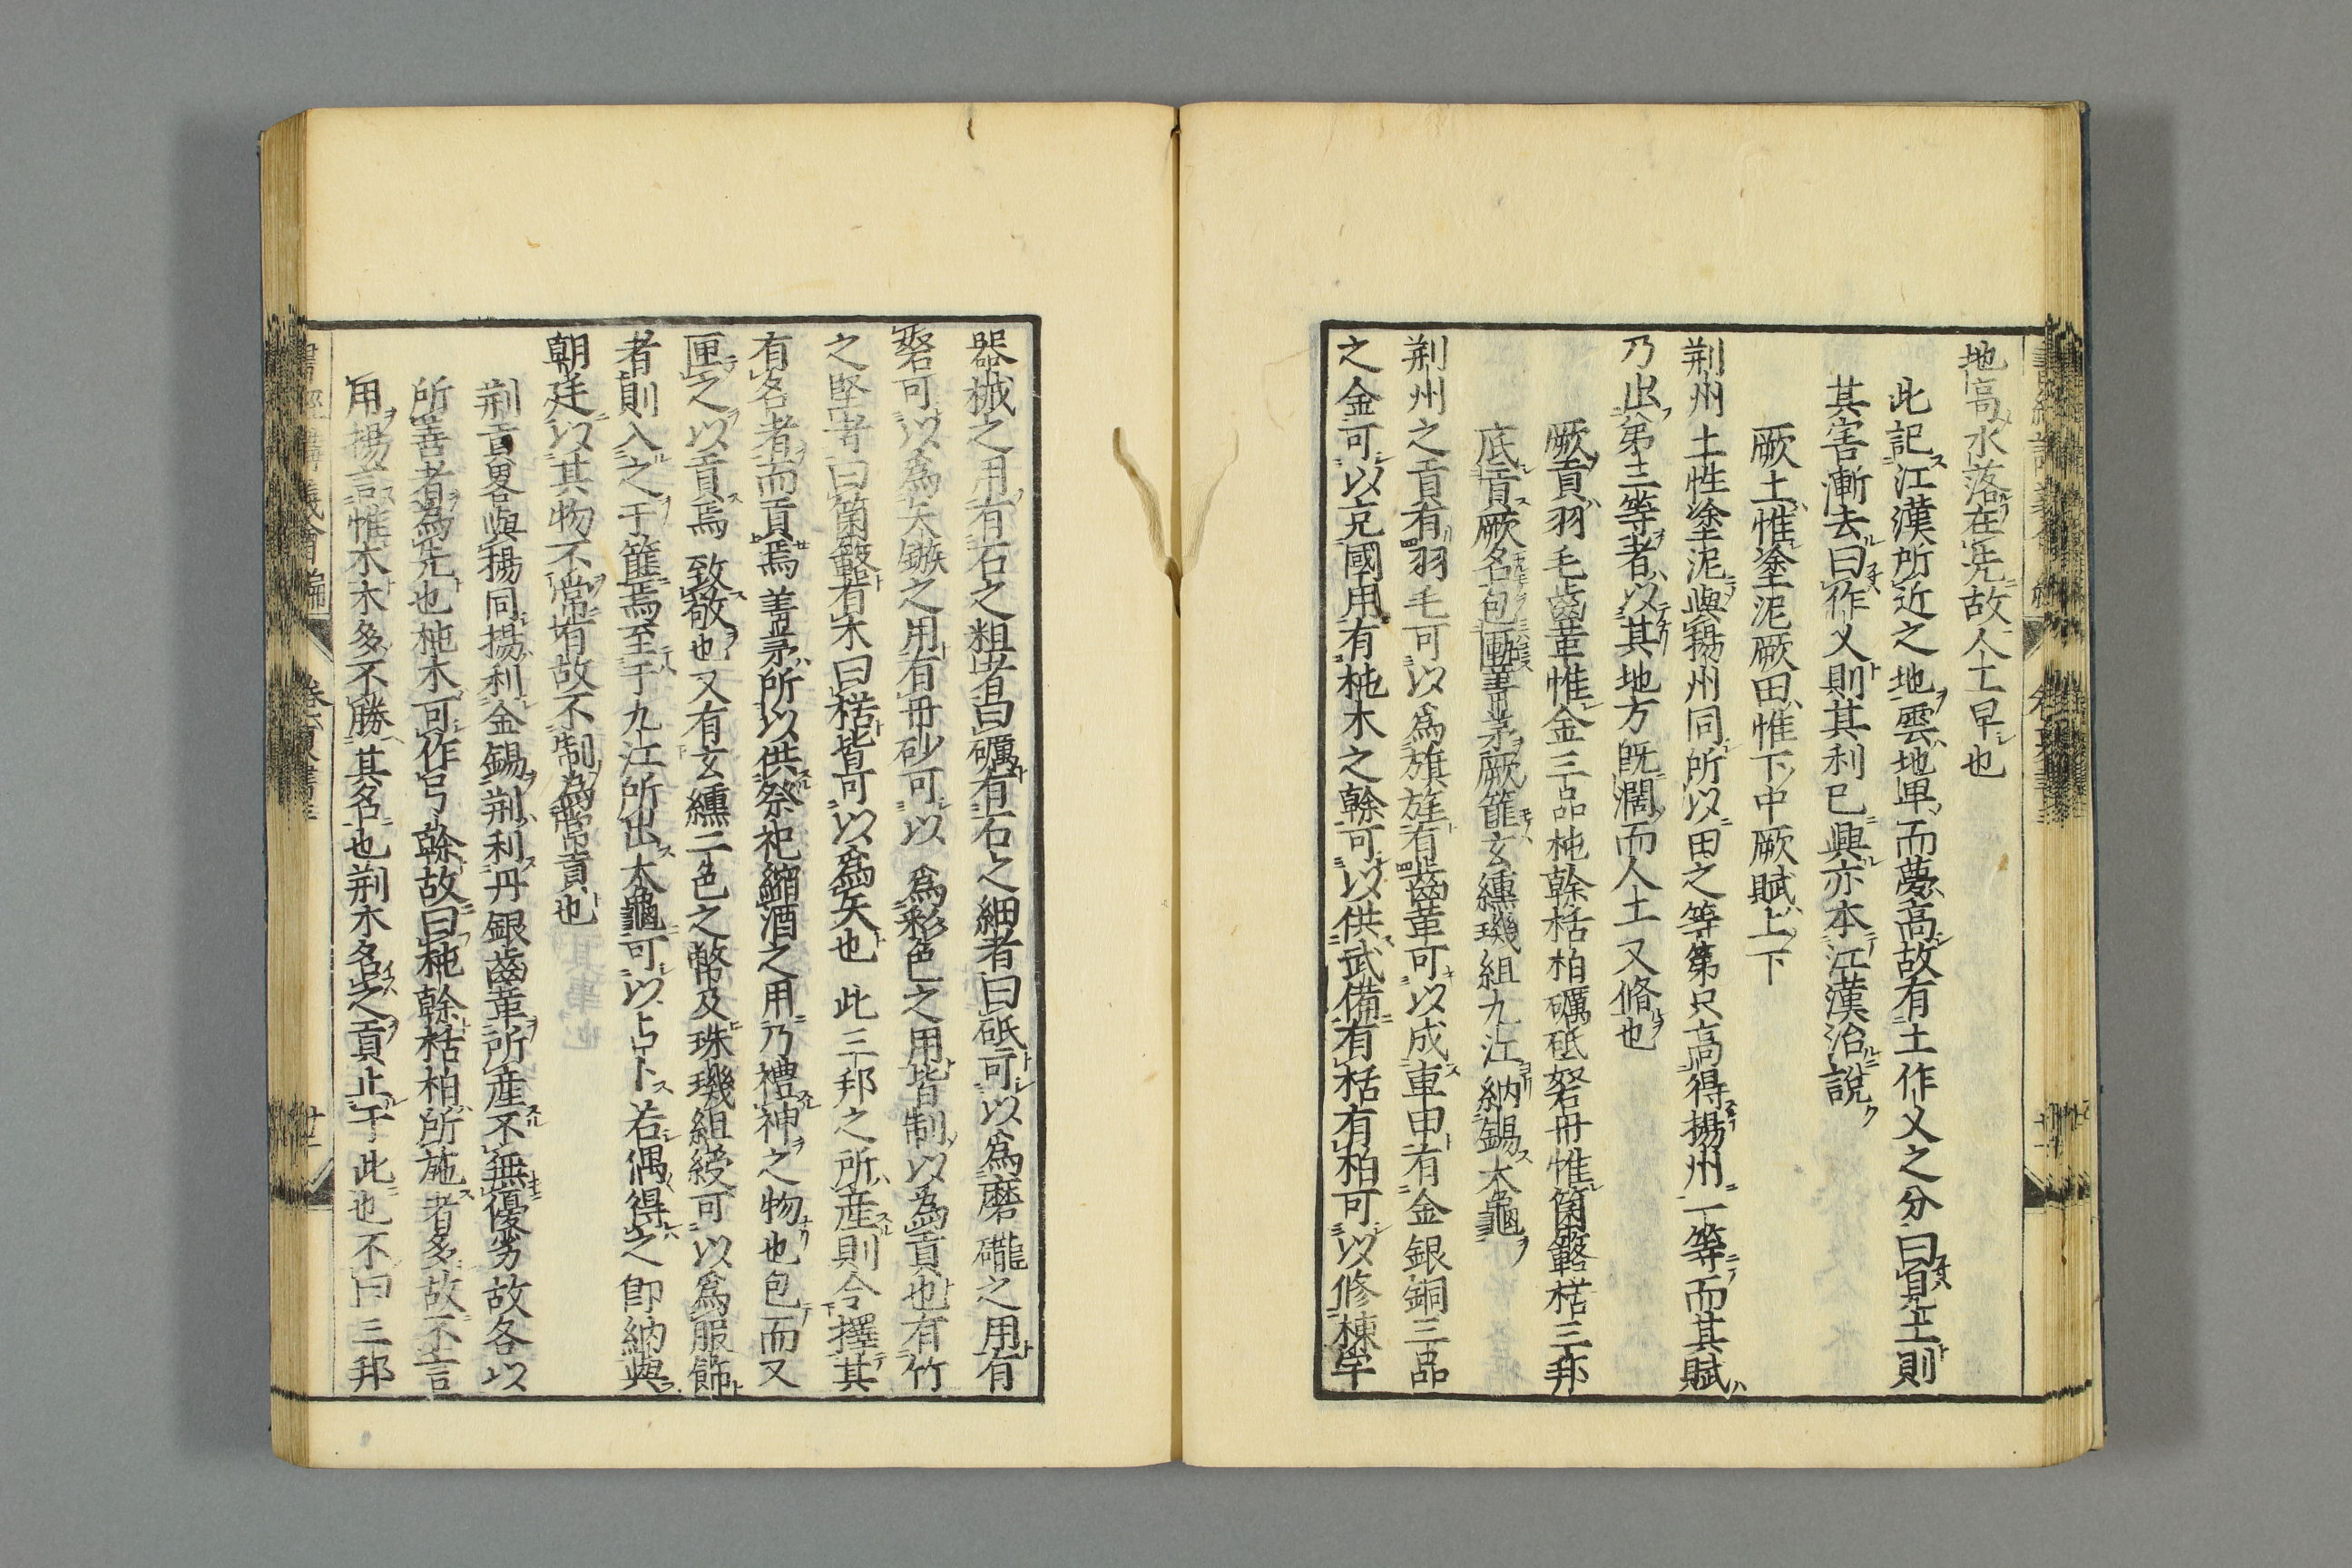 地高水落在先故人土早也
此記江漢所近之地雲地卑而夢高故有土作乂之分曰見土則
其害漸去曰作乂則其利已興亦本江漢治說
厥土惟塗泥厥田惟下中厥賦上下
荊州土性塗泥與揚州同所以田之等第只高得揚州一等而其賦
乃出第三等者以其地方既濶而人土又脩也
厥貢羽毛齒革惟金三品杶榦栝柏礪砥砮丹惟箘簵楛三邦
底貢厥名包匭菁茅厥篚玄纁璣組九江納錫大龜
荊州之貢有羽毛可以為旗旌有齒革可以成車甲有金銀銅三品
之金可以充國用有杶木之榦可以供武備有栝有柏可以修棟宇
器械之用有石之粗者曰礪有石之細者曰砥可以為磨礲之用有
砮可以為矢鏃之用有丹砂可以為彩色之用皆制以為貢也有竹
之堅者曰箘簵有木曰楛皆可以為矢也此三邦之所產則令擇其
有名者而貢焉菁茅所以供祭祀縮酒之用乃禮神之物也包而又
匣之以貢焉致敬也又有玄纁二色之幣及珠璣組綬可以為服飾
者則入之于篚焉至于九江所出大龜可以占卜若偶得之即納與
朝廷以其物不常有故不制為常貢也
荊貢畧與揚同揚利金錫荊利丹銀齒革所產不無優劣故各以
所善者為先也杶木可作弓榦故曰杶榦栝柏所施者多故不言
用揚言惟木木多不勝其名也荊木名之貢止于此也不曰三邦